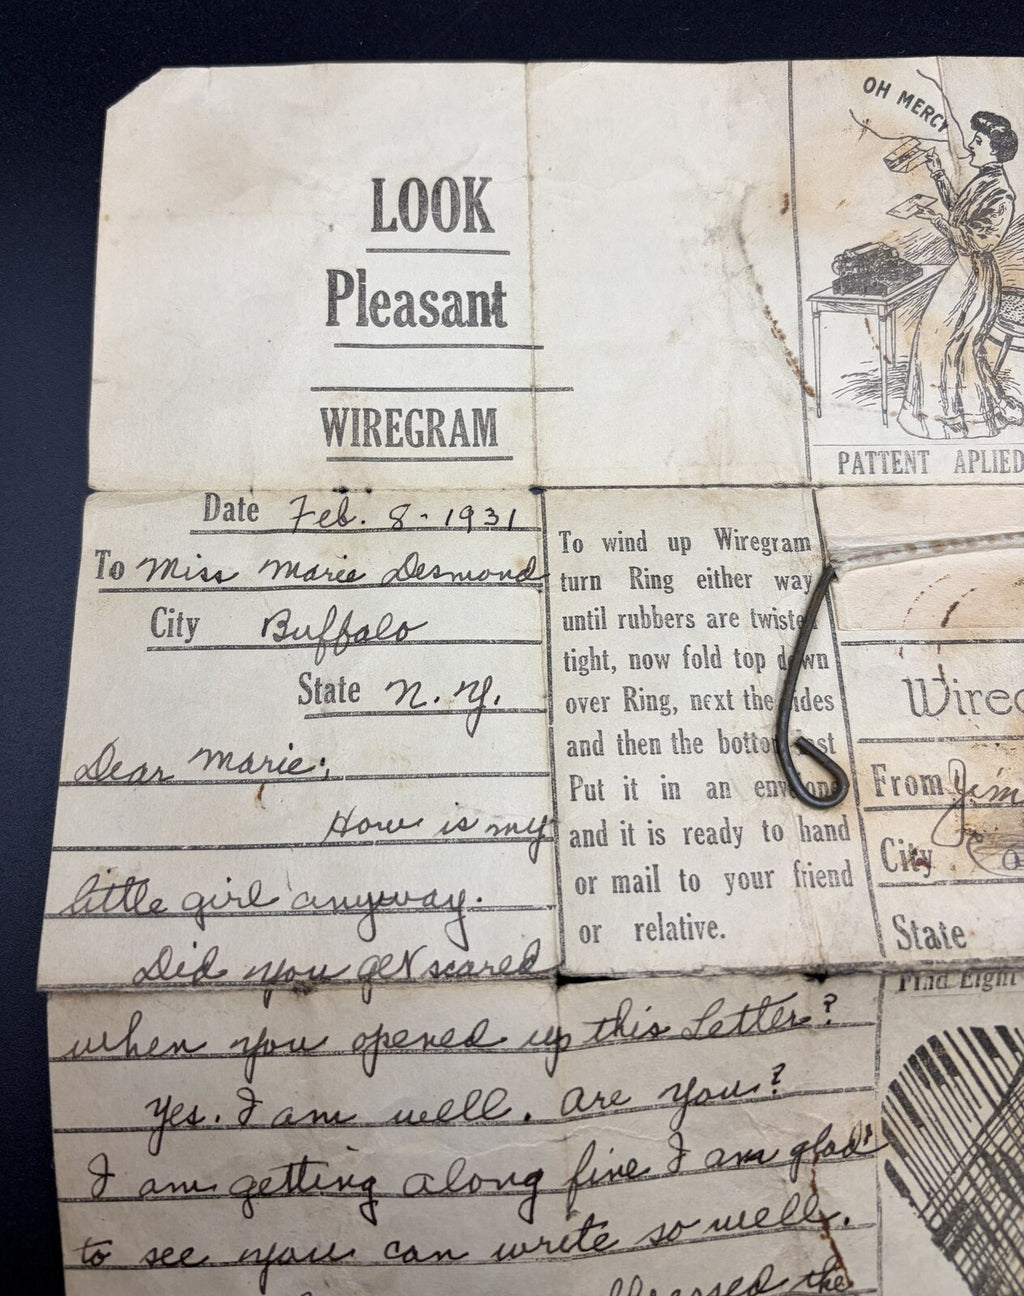 LOOK
Pleasant
WIREGRAM
OH MERCY
PATTENT APLIED
Date Feb. 8 - 1931
To Miss Marie Desmond
City Buffalo
State N. Y.
Dear Marie;
How is my
little girl anyway.
Did you get scared
when you opened up this Letter?
Yes. I am well. Are you?
I am getting along fine I am glad
to see you can write so well.
the
To wind up Wiregram
turn Ring either way
until rubbers are twisted
tight, now fold top down
over Ring, next the sides
and then the bottom last
Put it in an envelope
and it is ready to hand
or mail to your friend
or relative.
Wired
From Jim
City
State
Find Eight